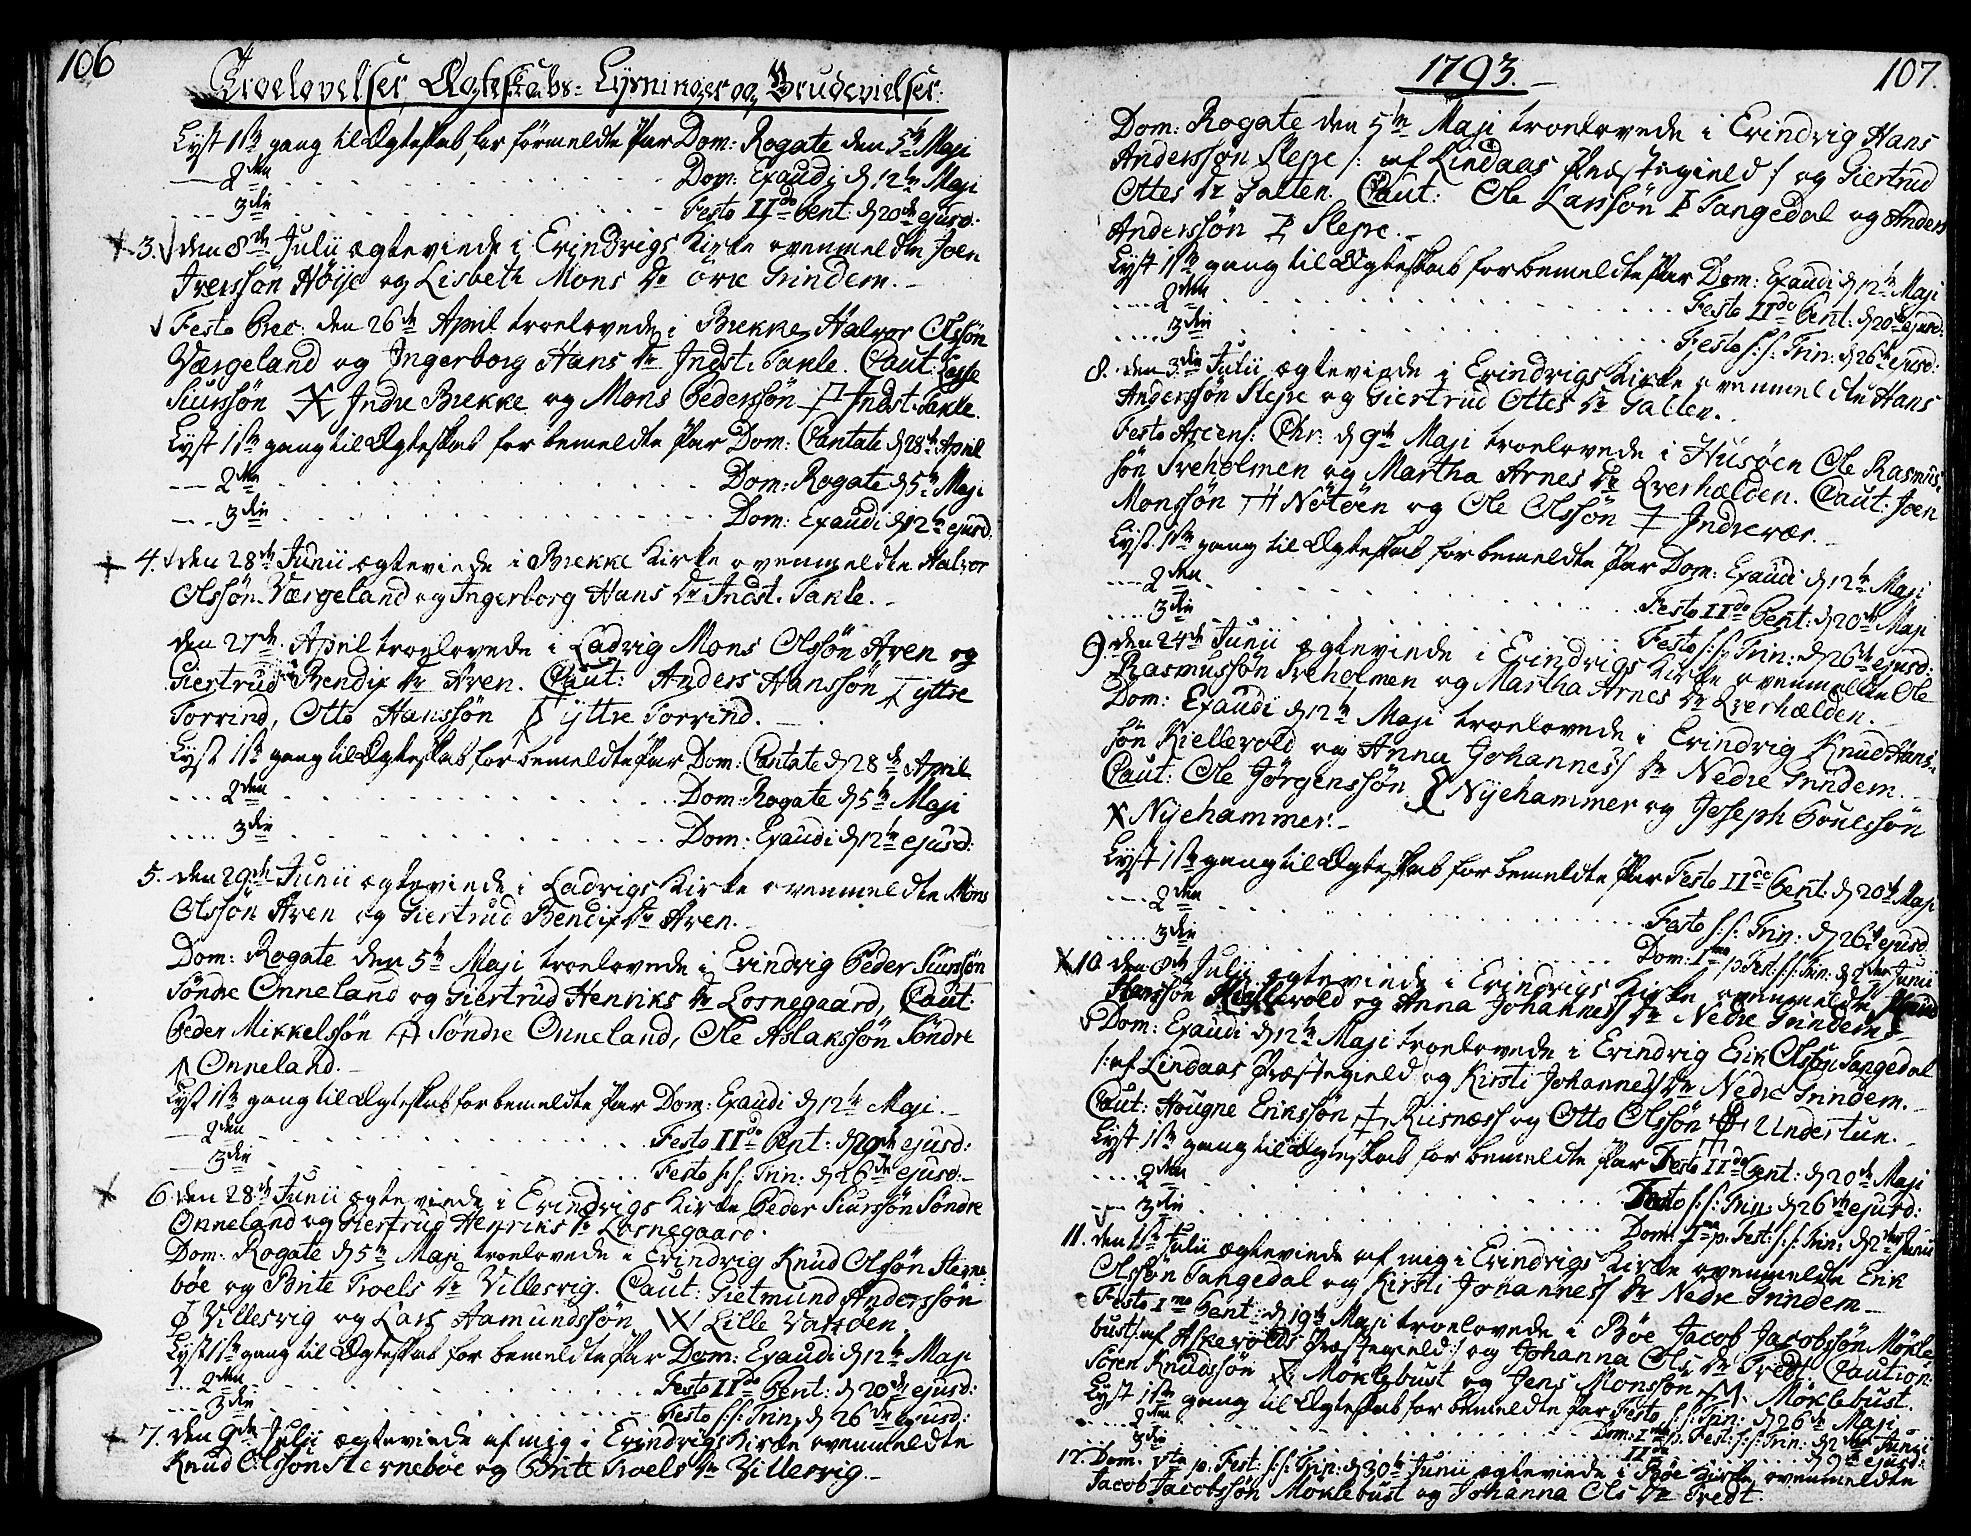 106
Troelovelser, Ægteskabs-Lysninger og Brudevielser.
Lyst 1ste gang til Ægteskab for formeldte Par Dom: Rogate den 5te Maji
2den Dom: Exaudi d 12te Maji
3die Festo IIdo Pent: d 20de ejusd:
3. den 8de Julii ægteviede i Evindvigs Kirke ovenmeldte Joen
Iverssøn Höije og Lisbeth Mons Dr övre Grindem.
Festo Prec: den 26de April troelovede i Brekke Halvor Olssøn
Værgeland og Ingerborg Hans Dr Indst: Takle. Caut: Lasse
Siurssön Indre Brekke og Mons Pederssön Indst: Takle.
Lyst 1ste gang til Ægteskab for bemeldte Par Dom: Cantate d 28de April
2den Dom: Rogate d 5te Maji
3die Dom: Exaudi d 12te ejusd.
4. den 28de Junii ægteviede i Brekke Kirke ovenmeldte Halvor
Olssön Værgeland og Ingerborg Hans Dr Indst. Takle.
den 27de April troelovede i Ladvig Mons Olssön Aven og
Giertrud Bendix Dr Aven. Caut: Anders Hanssön yttre
Torvind, Otto Hanssön yttre Torvind.
Lyst 1ste gang til Ægteskab for bemeldte Par Dom: Cantate d 28de April
2den Dom: Rogate d 5te Maji
3die Dom: Exaudi d 12te ejusd:
5. den 29de Junii ægteviede i Ladvigs Kirke ovenmeldte Mons
Olssön Aven og Giertrud Bendix Dr Aven.
Dom: Rogate den 5te Maji troelovede i Evindvig Peder Siurssön
Söndre Onneland og Giertrud Henriks Dr Losnegaard, Caut:
Peder Mikkelssön Söndre Onneland, Ole Aslakssön Söndre
Onneland.
Lyst 1ste gang til Ægteskab for bemeldte Par Dom: Exaudi d 12te Maji.
2den Festo IIdo Pent: d 20de ejusd:
3die Festo s:s: Trin: d 26de ejusd:
6. den 28de Junii ægteviede i Evindvigs Kirke Peder Siurssön Söndre
Onneland og Giertrud Henriks Dr Losnegaard.
Dom: Rogate d 5te Maji troelovede i Evindvig Knud Olssön Sterne-
böe og Brite Troels Dr Villesvig. Caut: Gietmund Anderssön
Villesvig og Lars Aamundssön Lille Vatsöen
Lyst 1ste gang til Ægteskab for bemeldte Par Dom: Exaudi d 12te Maji
2den Festo IIdo Pent: d 20de ejusd:
3die Festo s:s: Trin: d 26de ejusd:
7. den 9de Julii ægteviede af mig i Evindvigs Kirke ovenmeldte
Knud Olsson Sterneböe og Brite Troels Dr Villesvig.
1793.
107.
Dom: Rogate den 5te Maji troelovede i Evindvig Hans
Anderssøn Slepe /: af Lindaas Præstegield :/ og Giertrud
Ottes Dr Salten. Caut: Ole Larssön Tangedal og Anders
Anderssön Slepe.
Lyst 1ste gang til Ægteskab for bemeldte Par Dom: Exaudi d 12te Maji
2den Festo IIdo Pent: d 20de ejusd:
3die Festo s:s: Trin: d 26de ejusd:
8. den 3die Julii ægteviede i Evindvigs Kirke ovenmeldte Hans
Anderssön Slepe og Giertrud Ottes Dr Salten.
Festo Ascens: Chr: d 9de Maji troelovede i Husöen Ole Rasmus-
sön Treholmen og Martha Arnes Dr Qverhælden. Caut: Joen
Monssön Nötöen og Ole Olssön Indrevær.
Lyst 1ste gang til Ægteskab for bemeldte Par Dom: Exaudi d 12te Maji
2den Festo IIdo Pent: d 20de Maji
3die Festo s:s: Trin: d 26de ejusd:
9. den 24de Junii ægteviede i Evindvigs Kirke ovenmeldte Ole
Rasmussön Treholmen og Martha Arnes Dr Qverhælden.
Dom: Exaudi d 12te Maji troelovede i Evindvig Knud Hans-
sön Kiellevold og Anna Johannes Dr Nedre Grindem.
Caut: Ole Jörgenssön Nyehammer og Joseph Poulssön
Nyehammer.
Lyst 1ste gang til Ægteskab for bemeldte Par Festo IIdo Pent: d 20de Maji
2den Festo s:s: Trin: d 26de ejusd
3die Dom: Ima p. Fest: s:s: Trin: d 2den Junii
10. den 8de Julii ægteviede i Evindvigs Kirke ovenmeldte Knud
Hanssön Kiellevold og Anna Johannes Dr Nedre Grindem.
Dom: Exaudi d 12te Maji troelovede i Evindvig Erik Olssön Tangedal
/: af Lindaas Præstegield og Kirsti Johannes Dr Nedre Grindem.
Caut: Hougne Erikssön Risnæss og Otto Olssön Undertun.
Lyst 1ste gang til Ægteskab for bemeldte Par Festo IIdo Pent: d 20de Maji
2den Festo s:s: Trin: d 26de ejusd:
3die Dom: Ima p. Fest: s:s: Trin: d 2den Junii
11. den 1ste Julii ægteviede af mig i Evindvigs Kirke ovenmeldte Erik
Olssön Tangedal og Kirsti Johannes Dr Nedre Grindem
Festo Imo Pent: d 19de Maji troelovede i Böe Jacob Jacobssön Mökle-
bust /: af Askevolds Præstegield :/ og Johanna Ols Dr Tredt. Caution:
Sören Knudssön Möklebust og Jens Monssön Möklebust.
Lyst 1ste gang til Ægteskab for bemeldte Par Festo s:s: Trin: d 26de Maji
2den Dom: Ima p. Fest: s:s: Trin: d 2den Junii
3die IIda d 9de ejusd:
12. Dom. Vta p. Fest: s:s: Trin: d 30te Junii ægteviede i Böe Kirke ovenmeldte
Jacob Jacobssön Möklebust og Johanna Ols Dr Tredt.